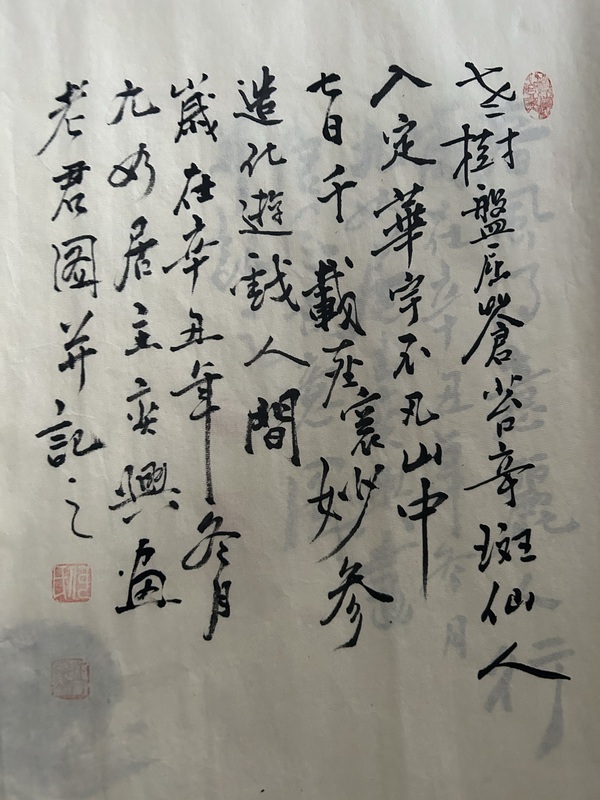 樹盤屈蒼苔斑仙人
入定華宇不凡山中
七日千載座裏妙參
造化遊戲人間
歲在辛丑年冬月
居主奕興畫
老君图并記之